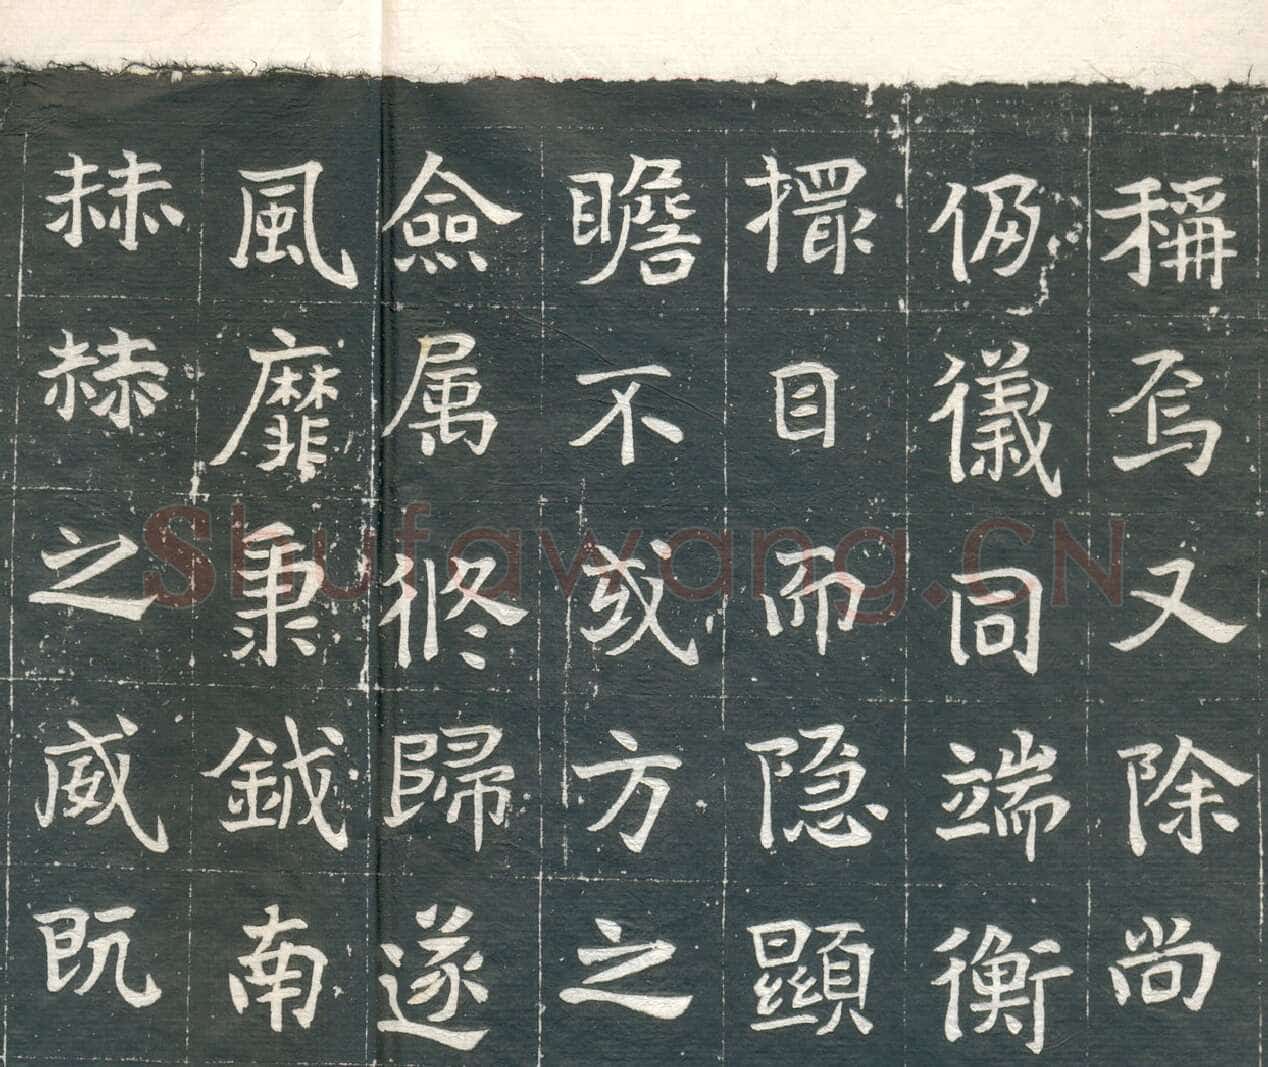 稱焉又除尚
仍儀同端衡
擢目而隐顯
瞻不或方之
僉属脩歸遂
風靡秉鉞南
赫赫之威既
Shufawang.CN